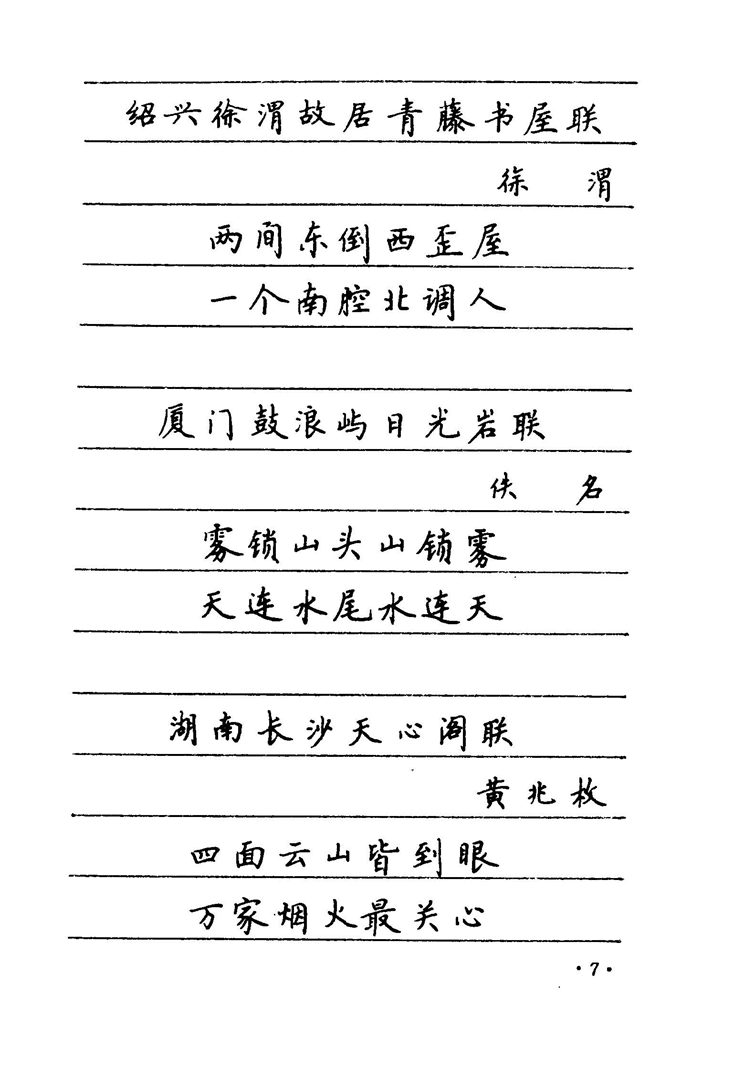 绍兴徐渭故居青藤书屋联
徐 渭
两间东倒西歪屋
一个南腔北调人
厦门鼓浪屿日光岩联
佚 名
雾锁山头山锁雾
天连水尾水连天
湖南长沙天心阁联
黄兆枚
四面云山皆到眼
万家烟火最关心
·7·